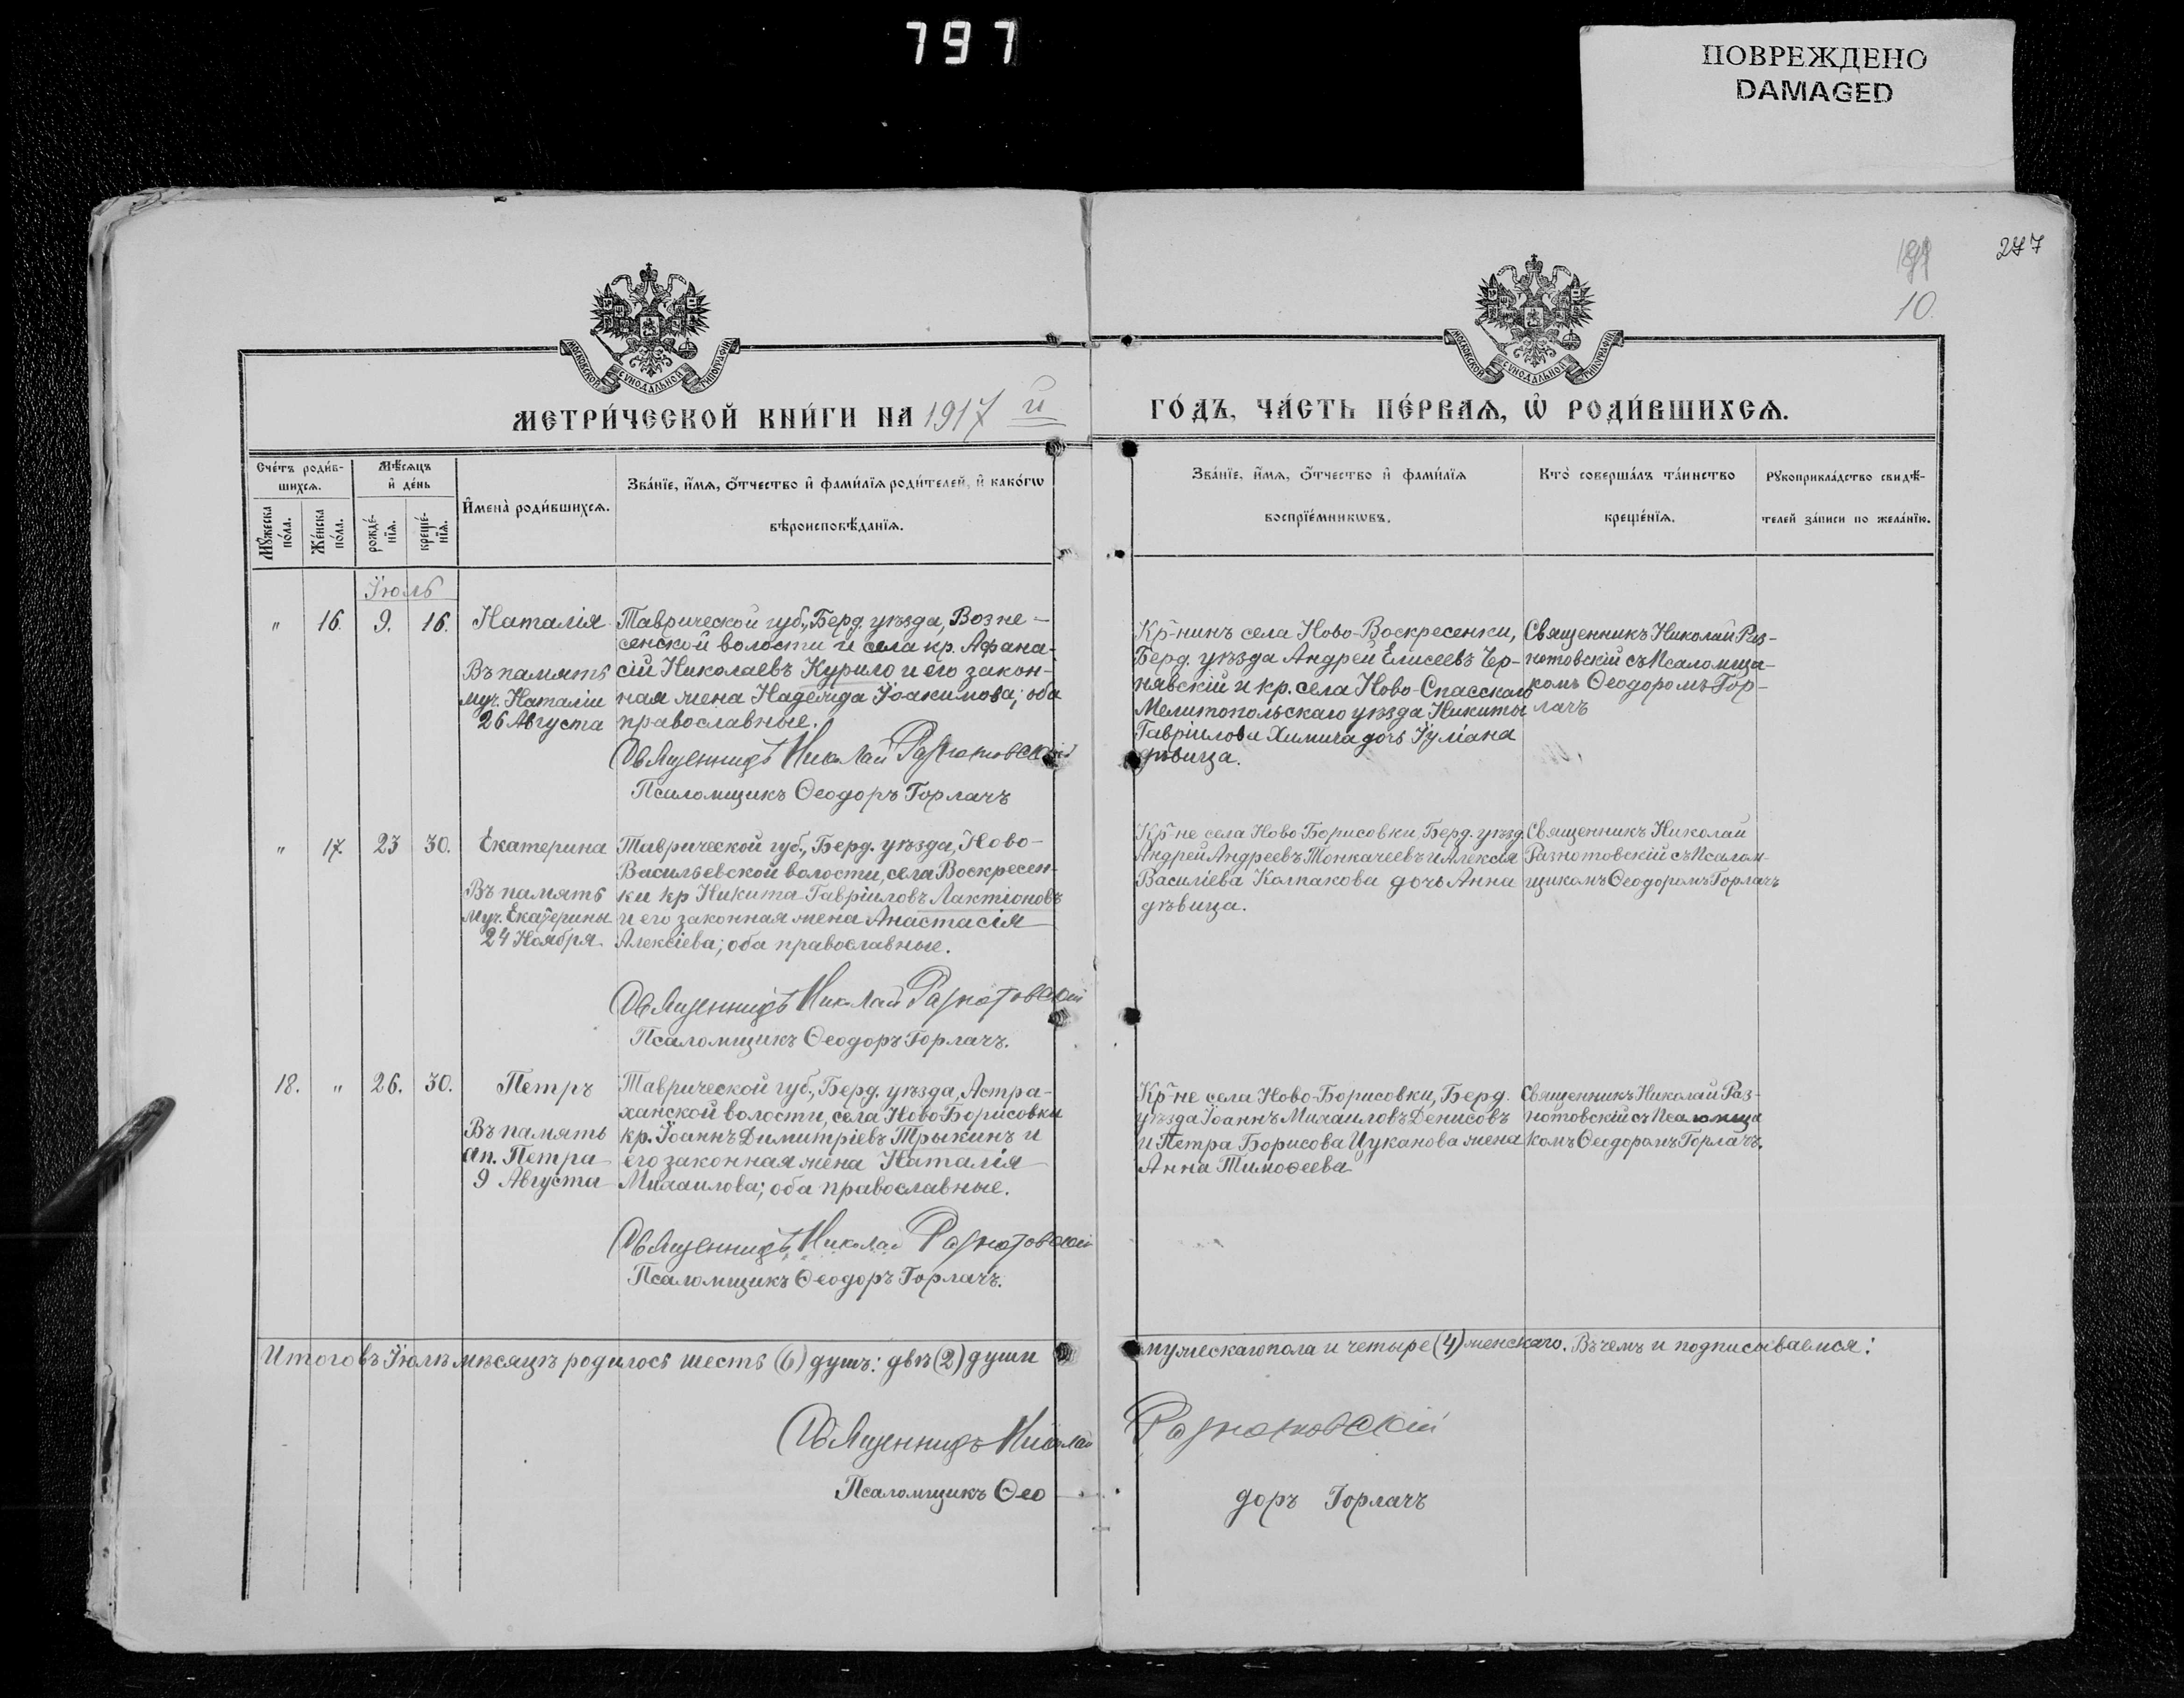 797
ПОВРЕЖДЕНО
DAMAGED
277
10.
МОСКОВСКОЙ СѴНОДАЛЬНОЙ ТИПОГРАФІИ
МОСКОВСКОЙ СѴНОДАЛЬНОЙ ТИПОГРАФІИ
МЕТРИ́ЧЕСКОЙ КНИ́ГИ НА 1917 й
ГО́ДЪ, ЧА́СТЬ ПЕ́РВАѦ, Ѡ҆ РОДИ́ВШИХСѦ.
Сче́тъ роди́в-
шихсѧ.
Мꙋ́жеска
по́ла.
Же́нска
по́ла.
Мѣ́сѧцъ
и҆ де́нь
рожде́-
нїѧ.
креще́-
нїѧ.
И҆мена̀ роди́вшихсѧ.
Зва́нїе, и҆́мѧ, ѻ҆́тчество и҆ фами́лїѧ роди́телей, и҆ како́гѡ
вѣроисповѣ́данїѧ.
Зва́нїе, и҆́мѧ, ѻ҆́тчество и҆ фами́лїѧ
воспрїе́мникѡвъ.
Кто̀ соверша́лъ та́инство
креще́нїѧ.
Рꙋкоприкла́дство свидѣ́-
телей за́писи по жела́нїю.
Іюль
" 16. 9. 16. Наталія
Въ память
муч. Наталіи
26 Августа
Таврической губ., Берд. уѣзда, Возне-
сенской волости и села кр. Афана-
сій Николаевъ Курило и его закон-
ная жена Надежда Іоакимова; оба
православные.
Священникъ Николай Разнотовскій
Псаломщикъ Ѳеодоръ Горлачъ
Кр-нинъ села Ново-Воскресенки,
Берд. уѣзда Андрей Елисеевъ Чер-
нявскій и кр. села Ново-Спасскаго
Мелитопольскаго уѣзда Никиты
Гавріилова Химича дочь Іуліана
дѣвица.
Священникъ Николай Раз-
нотовскій съ Псаломщи-
комъ Ѳеодоромъ Гор-
лачъ
" 17. 23 30. Екатерина
Въ память
муч. Екатерины
24 Ноября
Таврической губ., Берд. уѣзда, Ново-
Васильевской волости, села Воскресен-
ки кр Никита Гавріиловъ Лактіоновъ
и его законная жена Анастасія
Алексіева; оба православные.
Священникъ Николай Разнотовскій
Псаломщикъ Ѳеодоръ Горлачъ.
Кр-не села Ново Борисовки, Берд. уѣзд.
Андрей Андреевъ Тонкачеевъ и Алексія
Василіева Колпакова дочь Анна
дѣвица.
Священникъ Николай
Разнотовскій съ Псалом-
щикомъ Ѳеодоромъ Горлачъ
18. " 26. 30. Петръ
Въ память
Ап. Петра
9 Августа
Таврической губ., Берд. уѣзда, Астра-
ханской волости, села Ново Борисовки
кр. Іоаннъ Димитріевъ Трыкинъ и
его законная жена Наталія
Михаилова; оба православные.
Священникъ Николай Разнотовскій
Псаломщикъ Ѳеодоръ Горлачъ.
Кр-не села Ново-Борисовки, Берд.
уѣзда Іоаннъ Михаиловъ Денисовъ
и Петра Борисова Цуканова жена
Анна Тимоѳеева
Священникъ Николай Раз-
нотовскій съ Псаломщи
комъ Ѳеодоромъ Горлачъ.
Итого въ Іюлѣ мѣсяцѣ родилось шесть (6) душъ: двѣ (2) души
мужескаго пола и четыре (4) женскаго. Въ чемъ и подписываемся:
Священникъ Николай Разнотовскій
Псаломщикъ Ѳео доръ Горлачъ